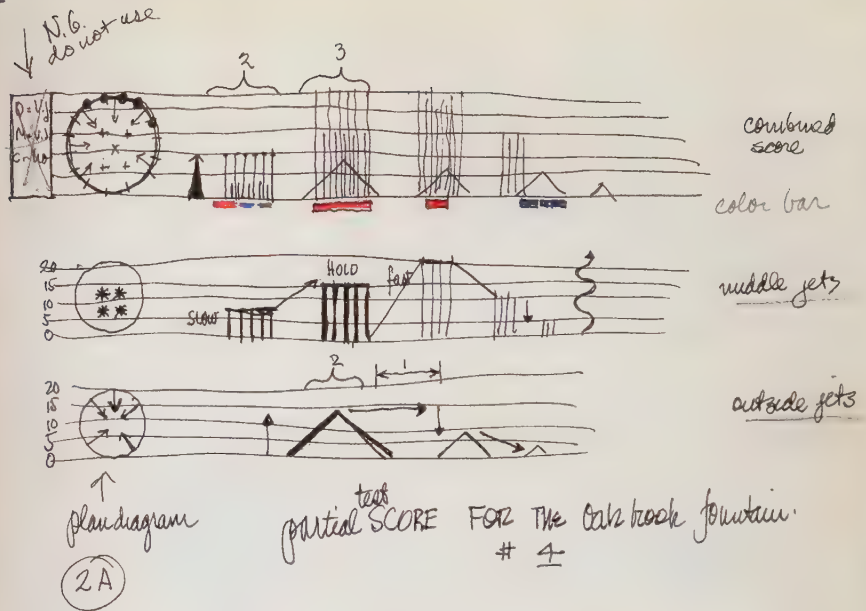 N.G.
do not use
2
3
combined
score
color bar
20
15
10
5
0
SLOW
HOLD
fast
middle jets
20
15
10
5
0
2
1
outside jets
plan diagram
test
partial SCORE FOR THE Oakbrook fountain.
# 4
2A